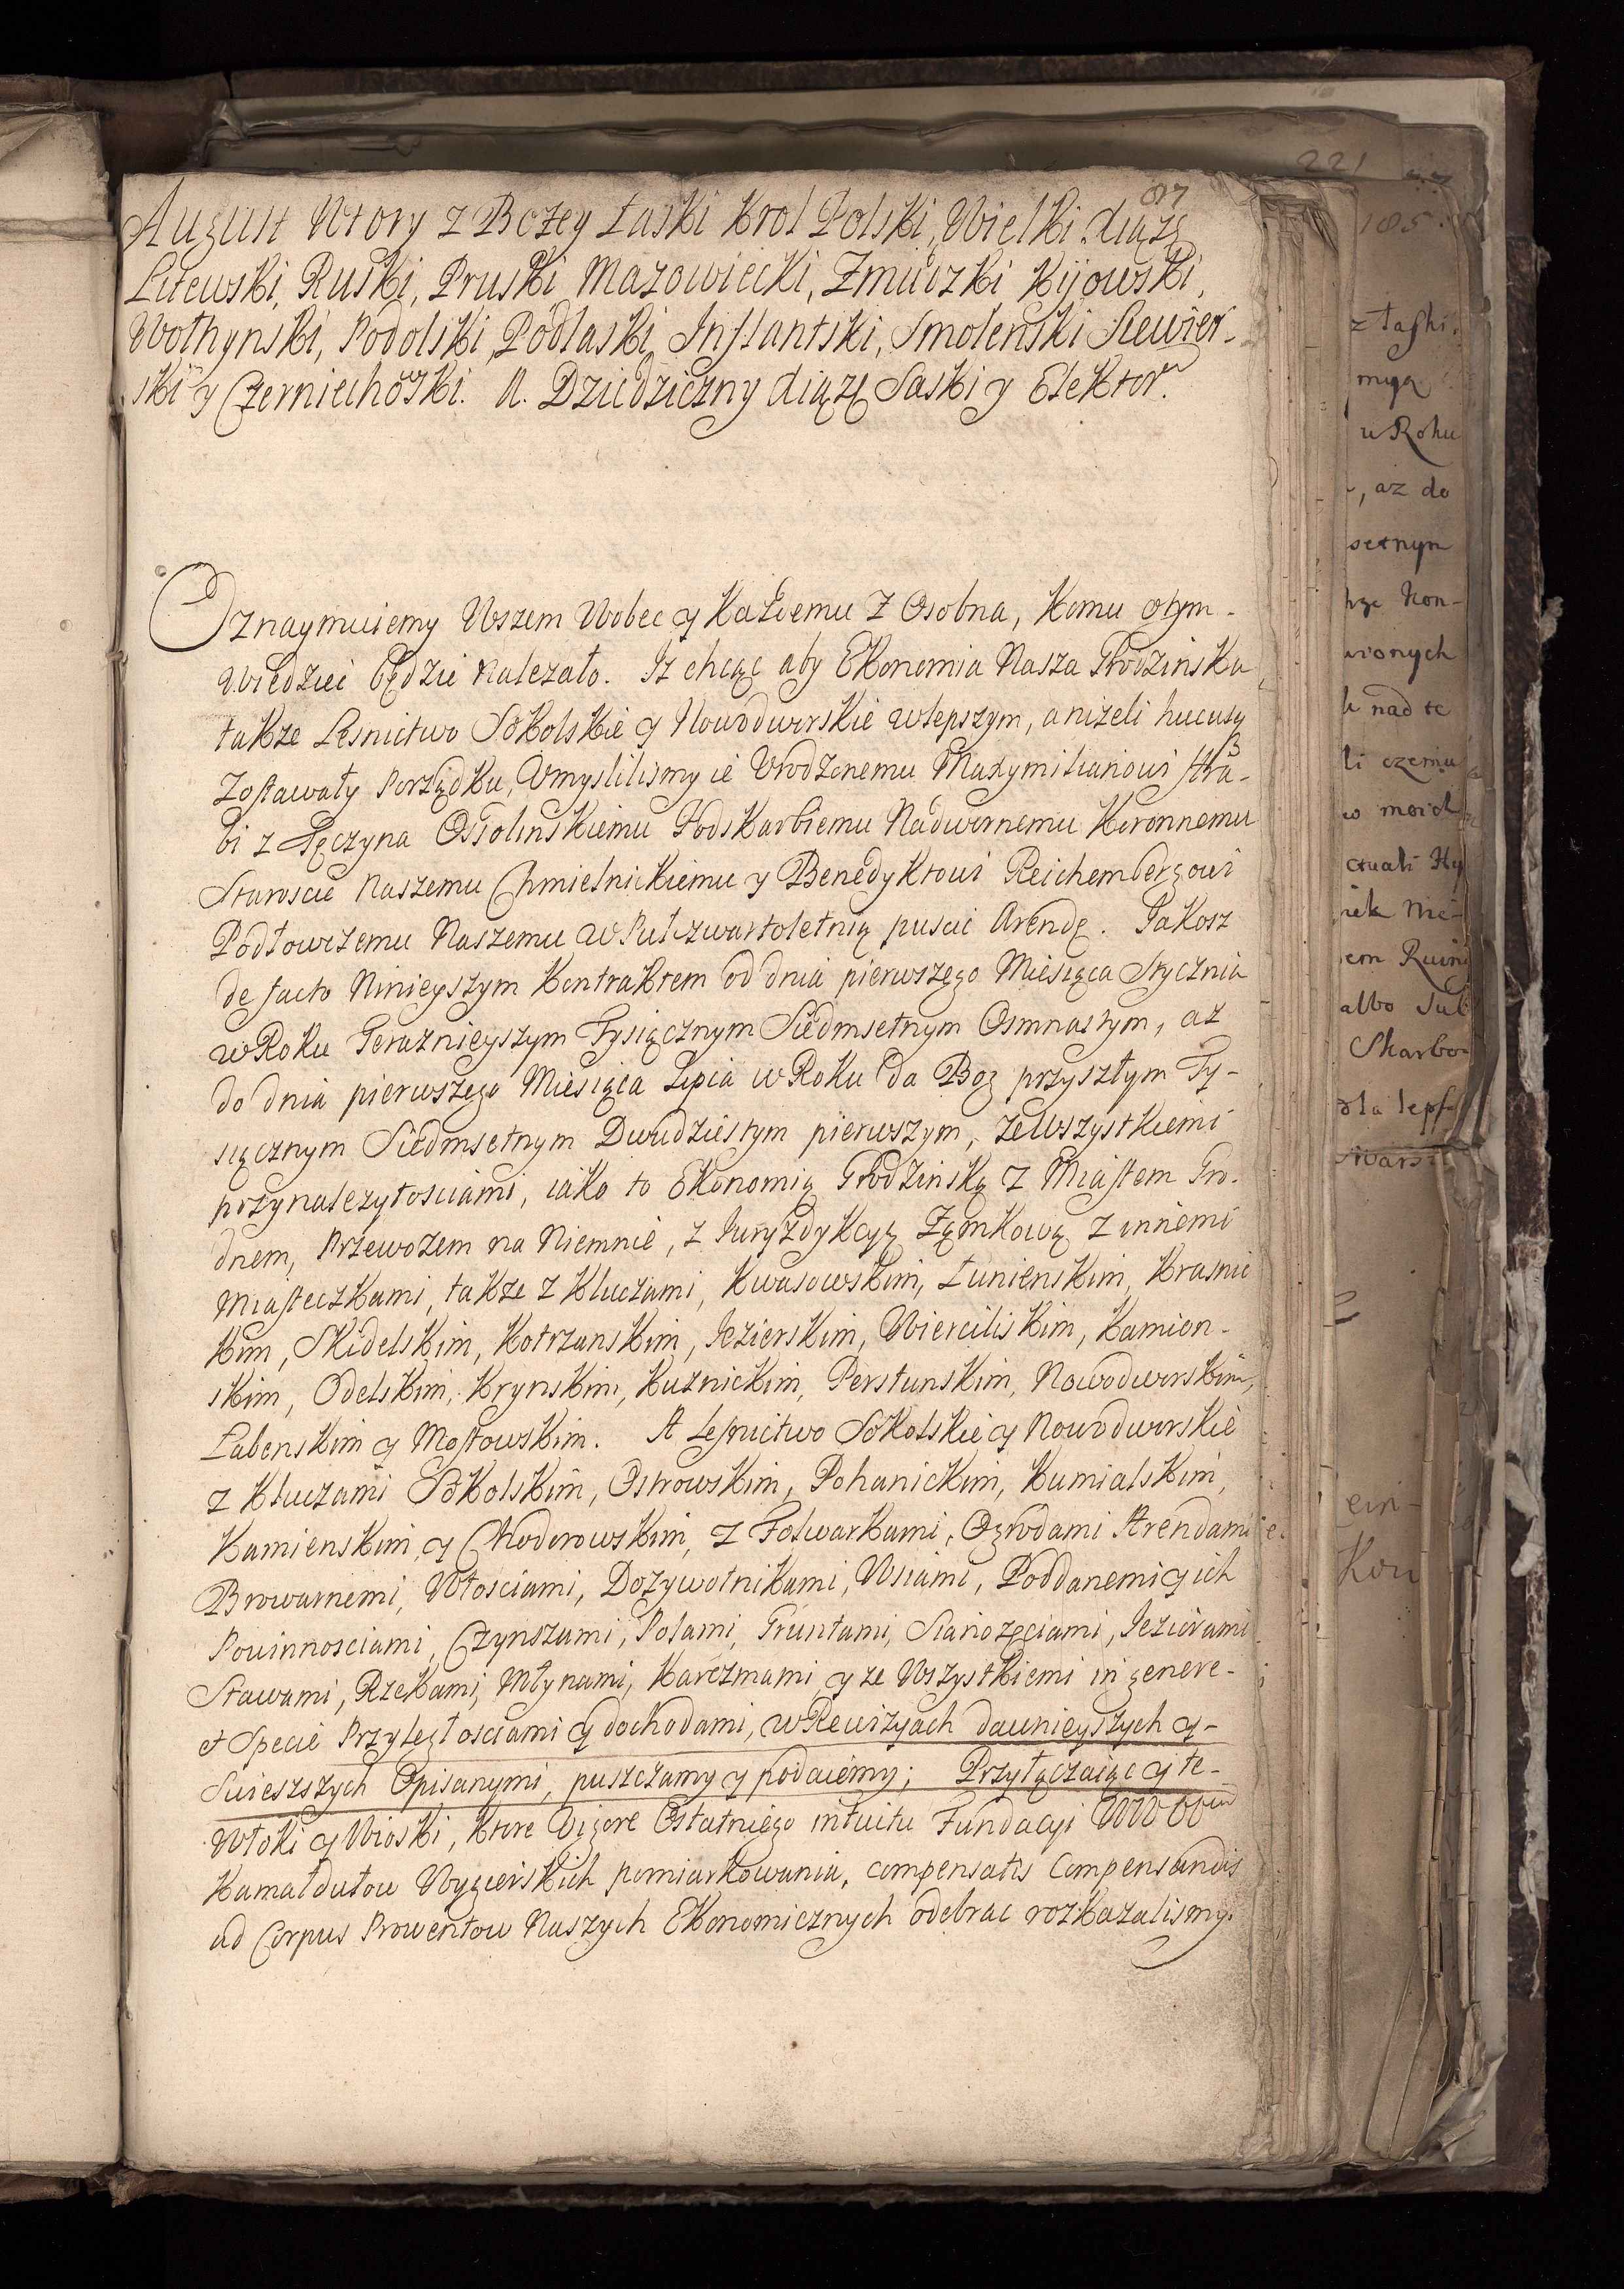 87
August Wtory z Bożey Łaski Krol Polski, Wielki Xiążę
Litewski, Ruski, Pruski Mazowiecki, Zmudzki Kijowski,
Wołhynski, Podolski, Podlaski, Inflantski, Smolenski Siewier-
ski y Czerniechowski. A. Dziedziczny Xiążę Saski y Elektor.
Oznaymuiemy Wszem Wobec y Każdemu z Osobna, Komu otym-
Wiedziec będzie nalezało. Iż chcąc aby Ekonomia Nasza Grodzinska
takze Lesnictwo Sokolskie y Nowodworskie wlepszym, anizeli hucusq
Zostawały porządku, Umyslilismy ie Urodzonemu Maxymilianowi Hra-
bi z Tęczyna Ossolinskiemu Podskarbiemu Nadwornemu Koronnemu
Staroscie Naszemu Chmielnickiemu y Benedyktowi Reichembergowi
Podłowczemu Naszemu w Pułczwartoletnią puscic Arendę. Jakosz
de facto Ninieyszym Kontraktem od dnia pierwszego Miesiąca Stycznia
w Roku Teraznieyszym Tysiącznym Siedmsetnym Osmnastym, az
do dnia pierwszego Miesiąca Lipca w Roku da Bog przyszłym Ty-
siącznym Siedmsetnym Dwudziestym pierwszym, ze Wszystkiemi
przynalezytosciami, iako to Ekonomią Grodzinską z Miastem Gro-
dnem, Przewozem na Niemnie, z Juryzdykcyą Zamkową z innemi
Miasteczkami, takze z Kluczami, Kwasowskim, Łunienskim, Krasnic
kim, Skidelskim, Kotrzanskim, Jezierskim, Wierciliskim, Kamion-
skim, Odelskim, Krynskim, Kuznickim, Perstunskim, Nowodworskim,
Łabenskim y Mostowskim. A Lesnictwo Sokolskie y Nowodworskie
z Kluczami Sokolskim, Ostrowskim, Pohanickim, Kumialskim,
Kamienskim, y Chodorowskim, z Folwarkami, Ogrodami Arendami
Browarnemi, Włosciami, Dożywotnikami, Wsiami, Poddanemi y ich
Powinnosciami, Czynszami, Polami, Gruntami, Sianozęciami, Jeziorami
Stawami, Rzekami, Młynami, Karczmami y ze Wszystkiemi in genere-
et Specie Przyległosciami y dochodami, w Rewizyach dawnieyszych y-
Swieższych Opisanymi, puszczamy y podaiemy; Przyłączaiąc y te-
Włoki y Wioski, ktore vigore Ostatniego intuitu Fundacyi
Kamaldułow Wygierskich pomiarkowania, compensatis Compensandis
ad Corpus Prowentow Naszych Ekonomicznych odebrac rozkazalismy.
221
105.
z łaski
w Roku
, az do
setnym
wionych
nad te
li czemu
w moich
albo
Skarbo
dla lepsz